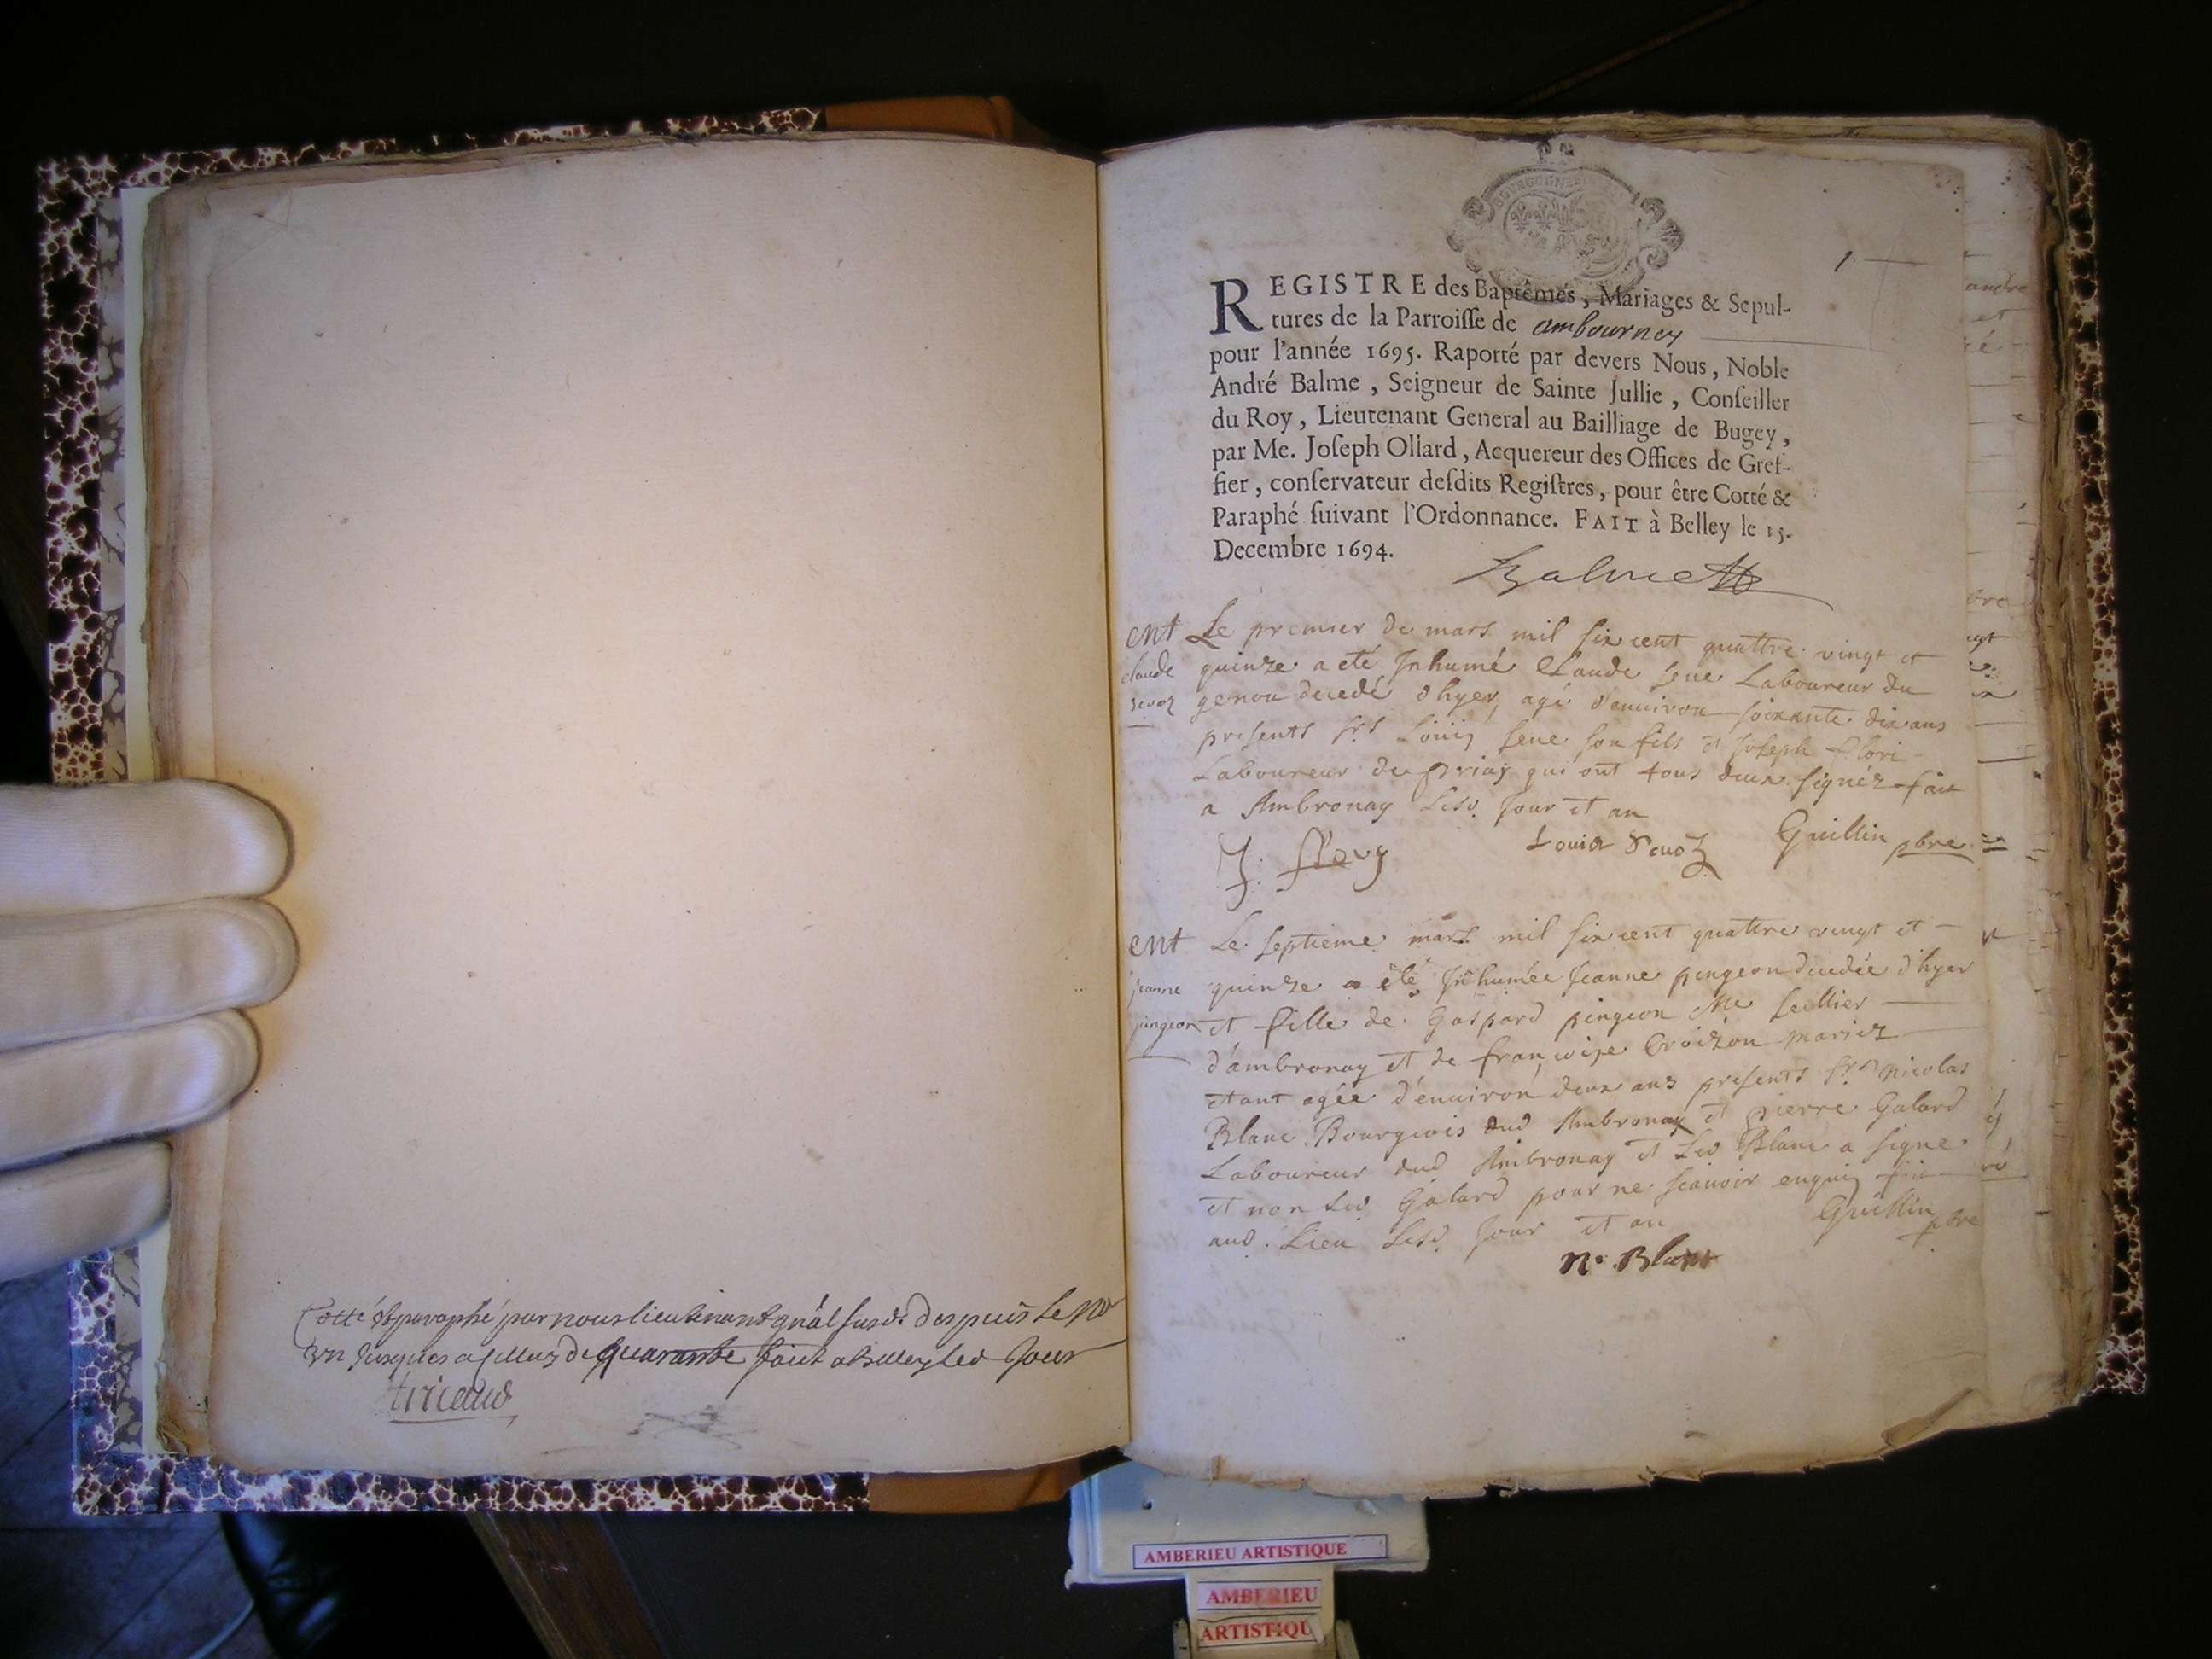 Cotté et paraphé par nous lieutenant gnãl susd. despuis le no
un jusques a celluy de quarante fait a Belley led jour
tricaud
BOURGOGNE
1
REGISTRE des Baptêmes, Mariages & Sepul-
tures de la Parroisse de ambournay
pour l'année 1695. Raporté par devers Nous, Noble
André Balme, Seigneur de Sainte Jullie, Conseiller
du Roy, Lieutenant General au Bailliage de Bugey,
par Me. Joseph Ollard, Acquereur des Offices de Gref-
fier, conservateur desdits Registres, pour être Cotté &
Paraphé suivant l'Ordonnance. FAIT à Belley le 15.
Decembre 1694.
Balme
ent
claude
sevoz
Le premier de mars mil six cent quattre vingt et
quinze a eté Inhumé Claude seve Laboureur du
genou decedé d'hyer agé d'enuiron soixante dix ans
presents srs Loüis seve son fils et Joseph flori
Laboureur de priay qui ont tous deux signéz fait
a Ambronay Lesd. Jour et an
J. flory
Louis Sevoz
Guillin pbre
ent
jeanne
pingeon
Le septieme mars mil six cent quattre vingt et
quinze a eté Inhumée Jeanne pingeon decedée d'hyer
et fille de Gaspard pingeon Me sellier
d'ambronay et de françoise Croizon mariez
etant agée d'enuiron deux ans presents srs nicolas
Blanc Bourgeois dud Ambronay et pierre Galard
Laboureur dud Ambronay et Led Blanc a signe
et non Led Galard pour ne scauoir enquis fait
aud. Lieu Lesd. Jour et an
Guillin pbre
n. Blanc
andre
et
AMBERIEU ARTISTIQUE
AMBERIEU
ARTISTIQU